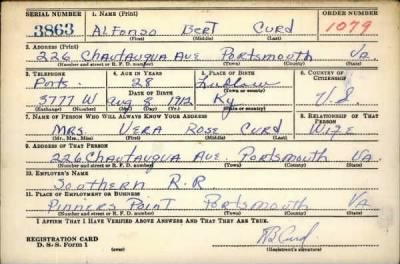 SERIAL NUMBER 1. NAME (Print) ORDER NUMBER
3863 ALFONSO BERT CURD 1079
(First) (Middle) (Last)
2. ADDRESS (Print)
226 CHAUTAUQUA AVE PORTSMOUTH VA.
(Number and street or R. F. D. number) (Town) (County) (State)
3. TELEPHONE 4. AGE IN YEARS 5. PLACE OF BIRTH 6. COUNTRY OF CITIZENSHIP
Ports. 28 Ludlow
DATE OF BIRTH (Town or county)
3777 W Aug 8 1912 Ky U.S.
(Exchange) (Number) (Mo.) (Day) (Yr.) (State or country)
7. NAME OF PERSON WHO WILL ALWAYS KNOW YOUR ADDRESS 8. RELATIONSHIP OF THAT PERSON
MRS. VERA ROSE CURD WIFE
(Mr., Mrs., Miss) (First) (Middle) (Last)
9. ADDRESS OF THAT PERSON
226 CHAUTAUQUA AVE PORTSMOUTH VA.
(Number and street or R. F. D. number) (Town) (County) (State)
10. EMPLOYER'S NAME
SOUTHERN R.R
11. PLACE OF EMPLOYMENT OR BUSINESS
PINNERS POINT PORTSMOUTH VA
(Number and street or R. F. D. number) (Town) (County) (State)
I AFFIRM THAT I HAVE VERIFIED ABOVE ANSWERS AND THAT THEY ARE TRUE.
REGISTRATION CARD
D. S. S. Form 1 (over) AB Curd
(Registrant's signature)